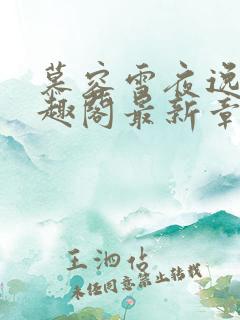 慕容雪夜逸
趣阁最新章
王泗佔
未经同意禁止转载